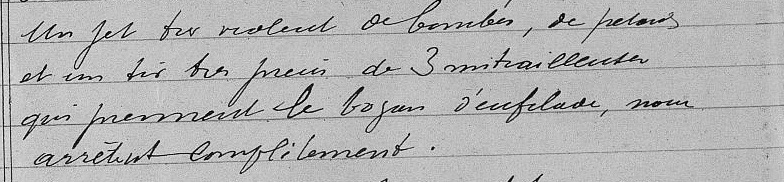 Un jet très violent de bombes, de pétards
et un tir très précis de 3 mitrailleuses
qui prennent le boyau d'enfilade, nous
arrêtent complètement.